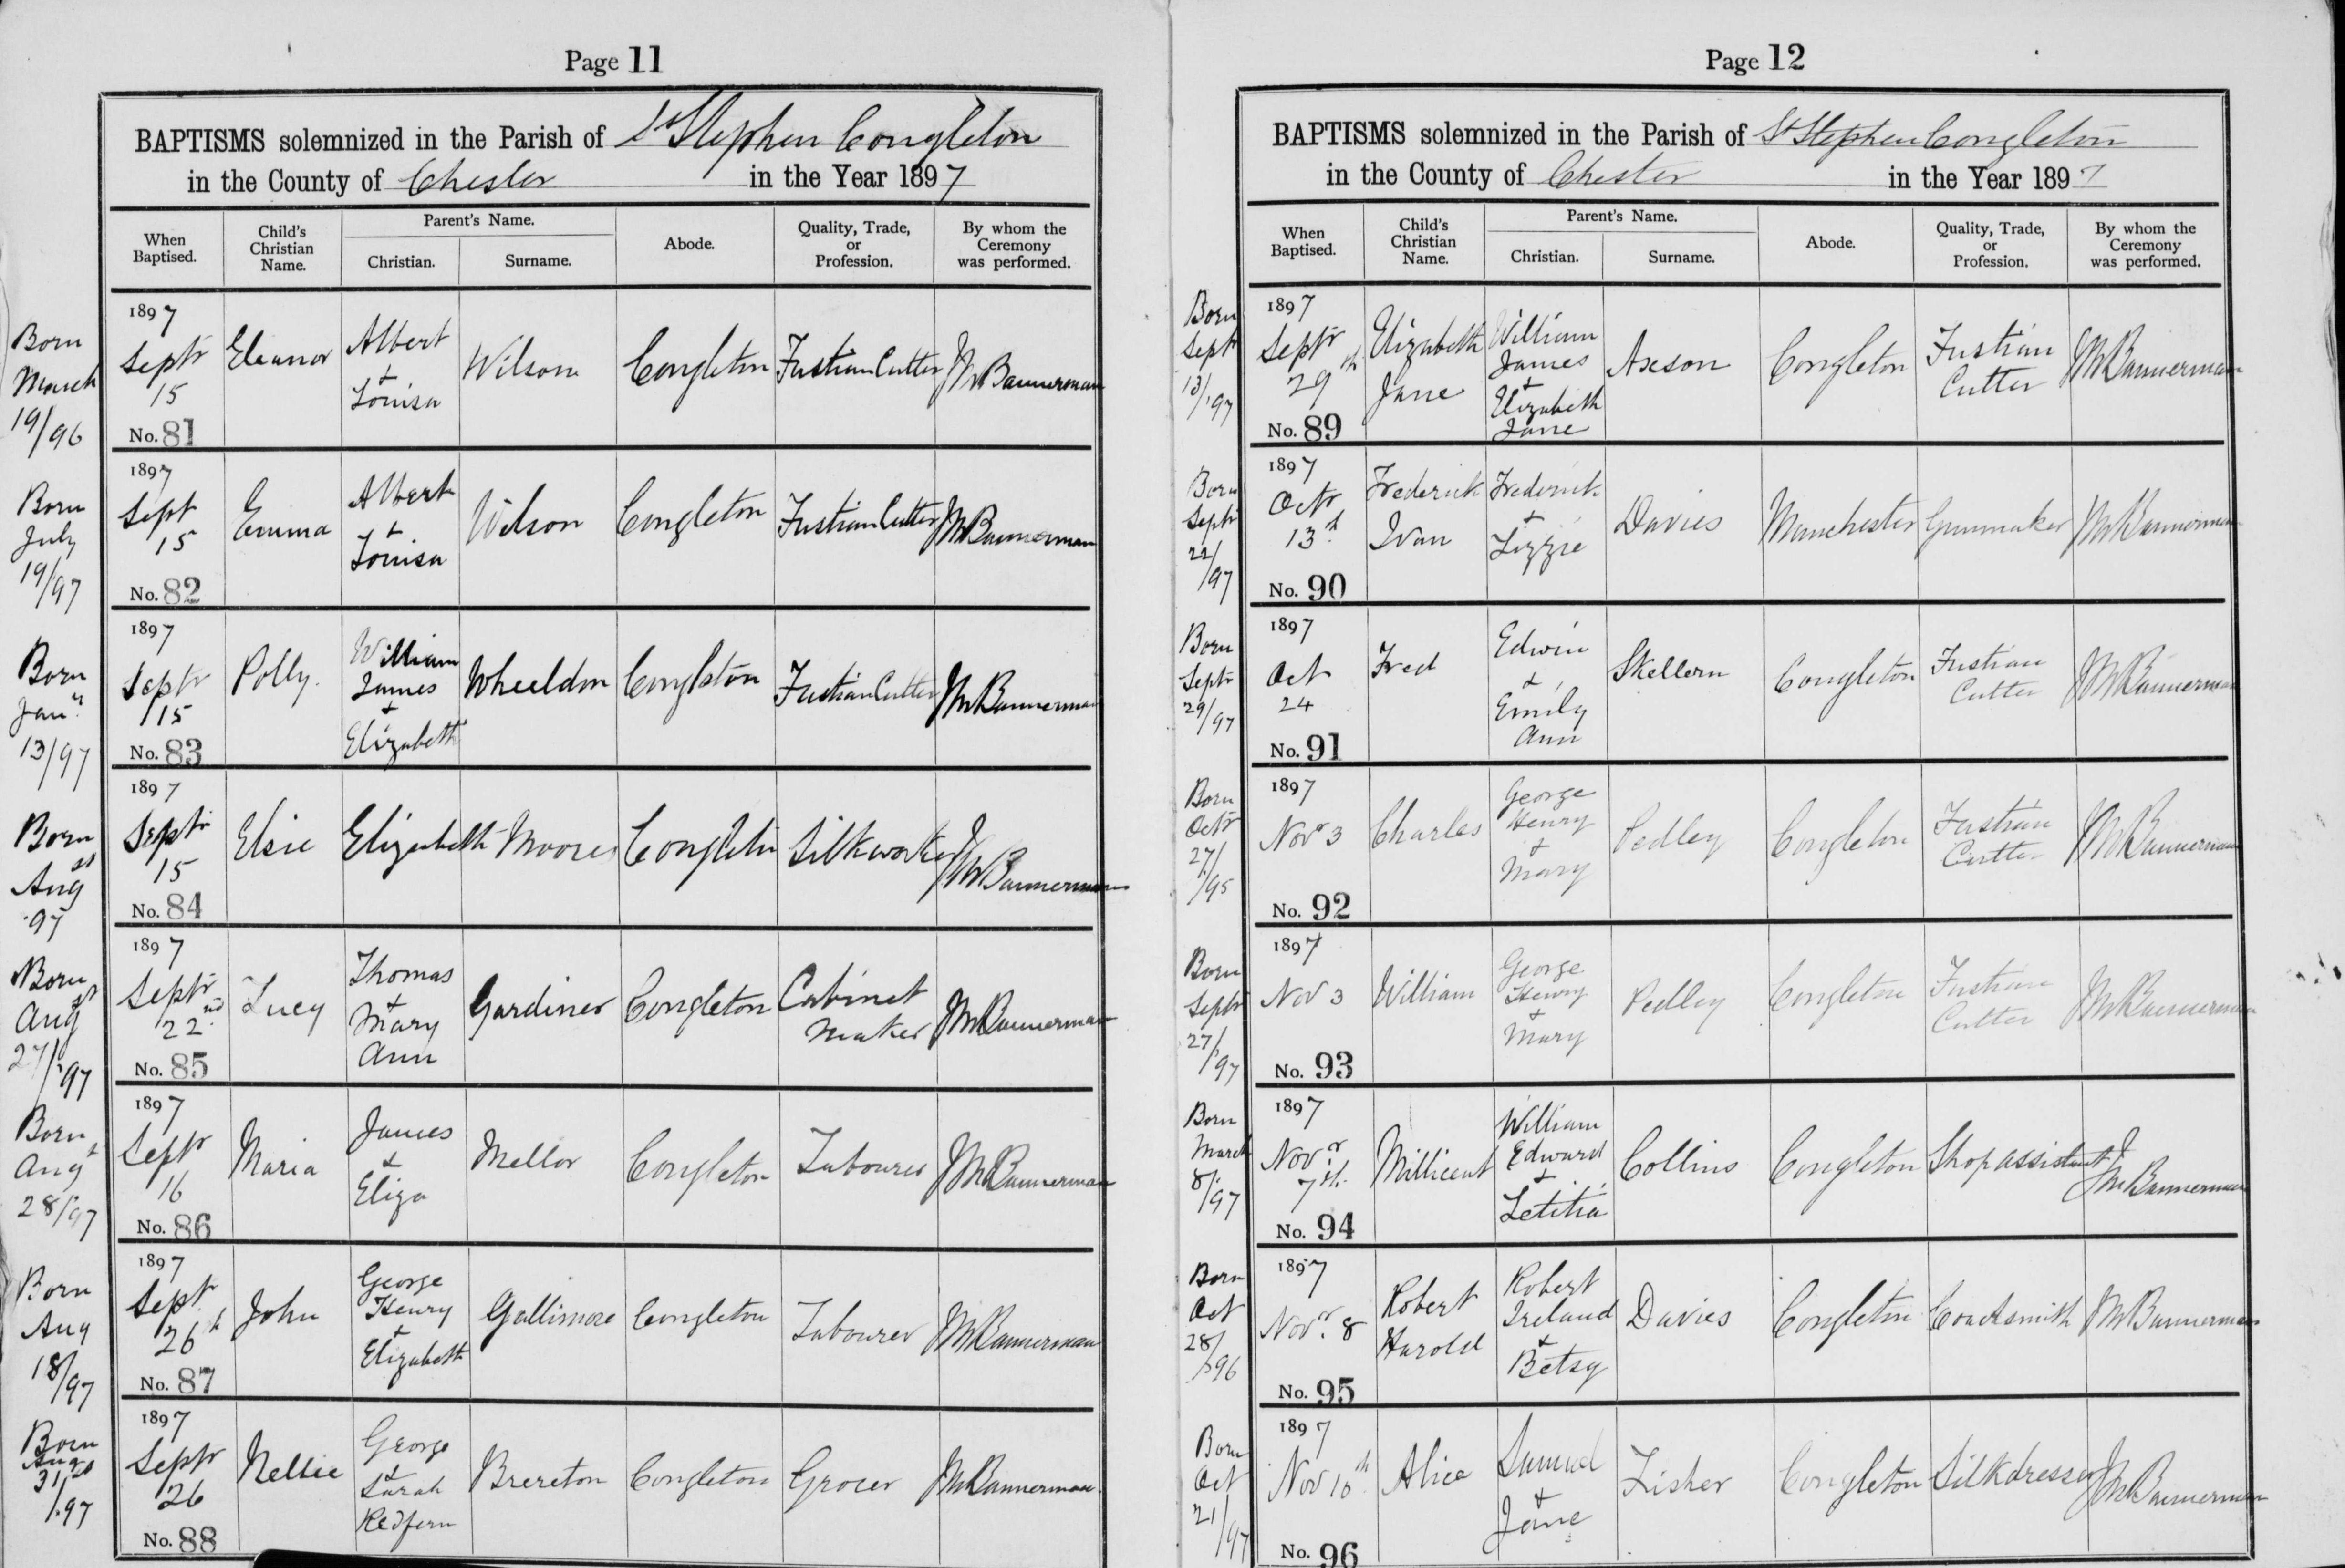 Page 11
BAPTISMS solemnized in the Parish of St Stephen Congleton
in the County of Chester in the Year 1897
When Baptised.
Child's Christian Name.
Parent's Name.
Christian.
Surname.
Abode.
Quality, Trade, or Profession.
By whom the Ceremony was performed.
Born March 19/96
1897 Septr 15 No. 81
Eleanor
Albert + Louisa
Wilson
Congleton
Fustian Cutter
Bannerman
Born July 19/97
1897 Sept 15 No. 82
Emma
Albert + Louisa
Wilson
Congleton
Fustian Cutter
Bannerman
Born Jany 13/97
1897 Septr 15 No. 83
Polly.
William James + Elizabeth
Wheeldon
Congleton
Fustian Cutter
Bannerman
Born Aug 97
1897 Septr 15 No. 84
Elsie
Elizabeth
Moores
Congleton
Silkworker
Bannerman
Born Aug 27/97
1897 Septr 22nd No. 85
Lucy
Thomas + Mary Ann
Gardiner
Congleton
Cabinet Maker
Bannerman
Born Augt 28/97
1897 Septr 16 No. 86
Maria
James + Eliza
Mellor
Congleton
Labourer
Bannerman
Born Aug 18/97
1897 Sept. 26th No. 87
John
George Henry + Elizabeth
Gallimore
Congleton
Labourer
Bannerman
Born Aug 31st/97
1897 Septr 26 No. 88
Nellie
George + Sarah Redfern
Brereton
Congleton
Grocer
Bannerman
Page 12
BAPTISMS solemnized in the Parish of St Stephen Congleton
in the County of Chester in the Year 1897
When Baptised.
Child's Christian Name.
Parent's Name.
Christian.
Surname.
Abode.
Quality, Trade, or Profession.
By whom the Ceremony was performed.
Born Septr 13/97
1897 Septr 29th No. 89
Elizabeth Jane
William James + Elizabeth Jane
Axson
Congleton
Fustian Cutter
Bannerman
Born Septr 22/97
1897 Octr 13th No. 90
Frederick Ivan
Frederick + Lizzie
Davies
Manchester
Gunmaker
Bannerman
Born Septr 29/97
1897 Oct 24 No. 91
Fred
Edwin + Emily Ann
Skellern
Congleton
Fustian Cutter
Bannerman
Born Octr 27/95
1897 Novr 3 No. 92
Charles
George Henry + Mary
Pedley
Congleton
Fustian Cutter
Bannerman
Born Septr 27/97
1897 Nov 3 No. 93
William
George Henry + Mary
Pedley
Congleton
Fustian Cutter
Bannerman
Born March 8/97
1897 Novr 7th. No. 94
Millicent
William Edward + Letitia
Collins
Congleton
Shop assistant
Bannerman
Born Oct 28/96
1897 Novr. 8 No. 95
Robert Harold
Robert Ireland + Betsy
Davies
Congleton
Coachsmith
Bannerman
Born Oct 21/97
1897 Nov 10th No. 96
Alice
Samuel + Jane
Fisher
Congleton
Silkdresser
Bannerman